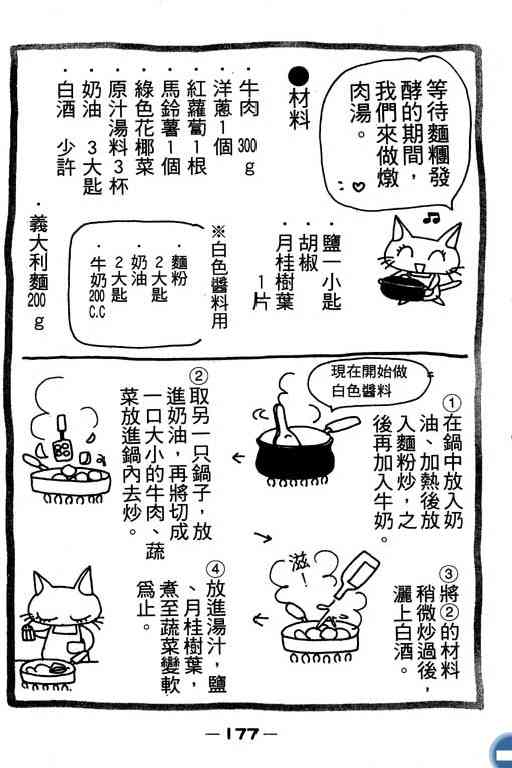 等待麵糰發
酵的期間，
我們來做燉
肉湯。
●材料
・牛肉 300g
・洋蔥1個
・紅蘿蔔1根
・馬鈴薯1個
・綠色花椰菜
・原汁湯料3杯
・奶油 3大匙
・白酒 少許
・鹽一小匙
・胡椒
・月桂樹葉
1片
※白色醬料用
・麵粉
2大匙
・奶油
2大匙
・牛奶200c.c
・義大利麵200g
現在開始做
白色醬料
①在鍋中放入奶
油、加熱後放
入麵粉炒，之
後再加入牛奶。
②取另一只鍋子，放
進奶油，再將切成
一口大小的牛肉、蔬
菜放進鍋內去炒。
③將②的材料
稍微炒過後，
灑上白酒。
滋－
④放進湯汁，鹽
、月桂樹葉，
煮至蔬菜變軟
為止。
－177－